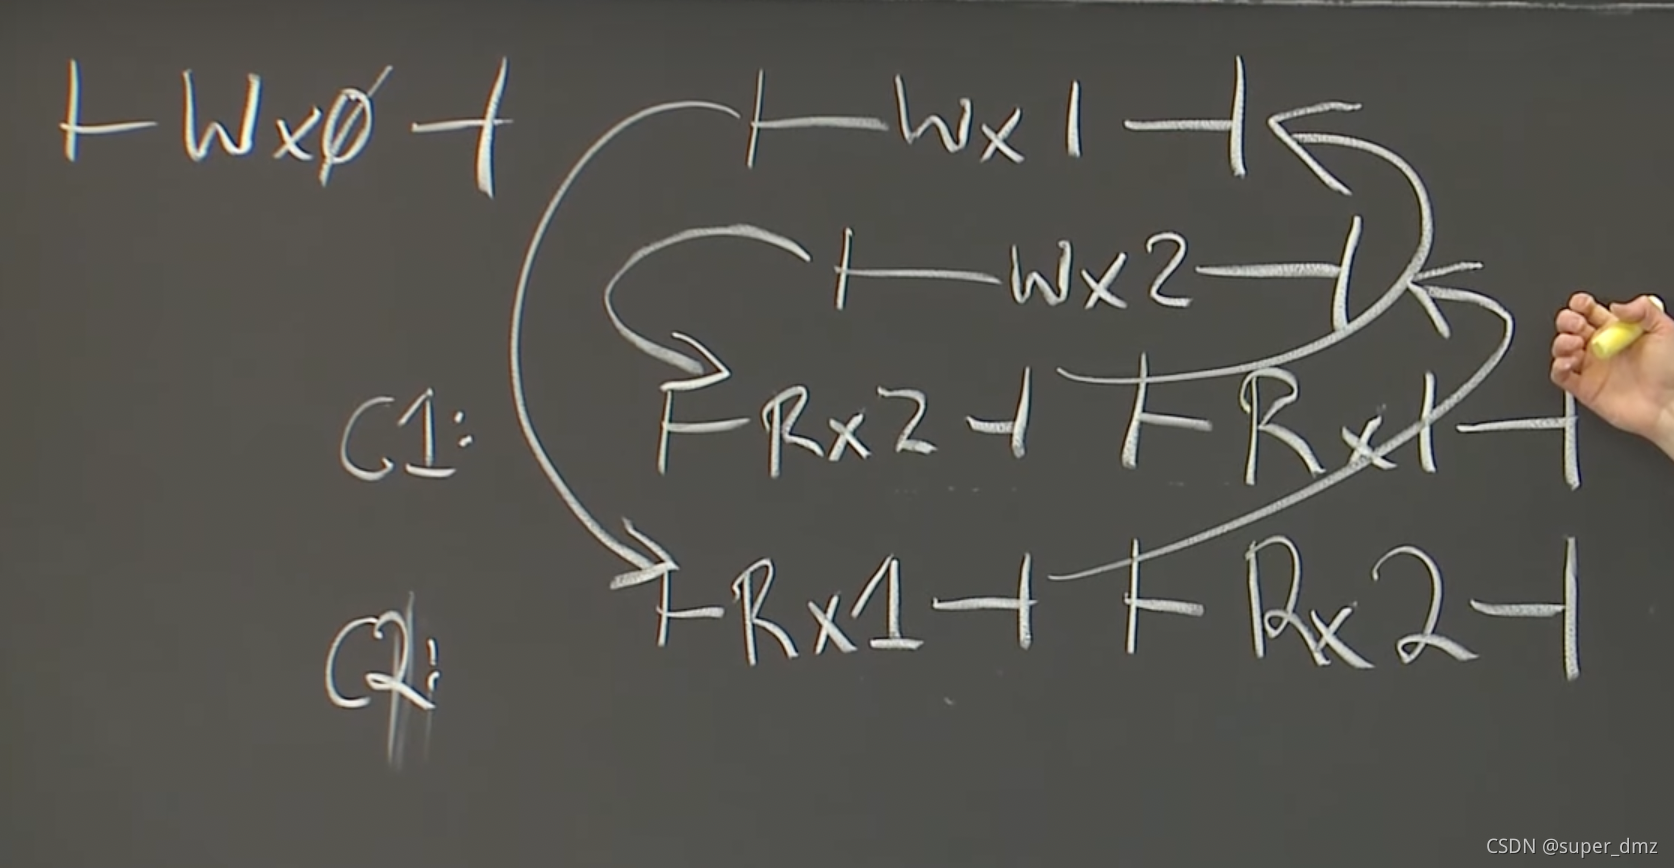 ⊢Wx∅⊣ ⊢Wx1⊣
⊢Wx2⊣
C1: ⊢Rx2⊣ ⊢Rx1⊣
C2: ⊢Rx1⊣ ⊢Rx2⊣
CSDN @super_dmz